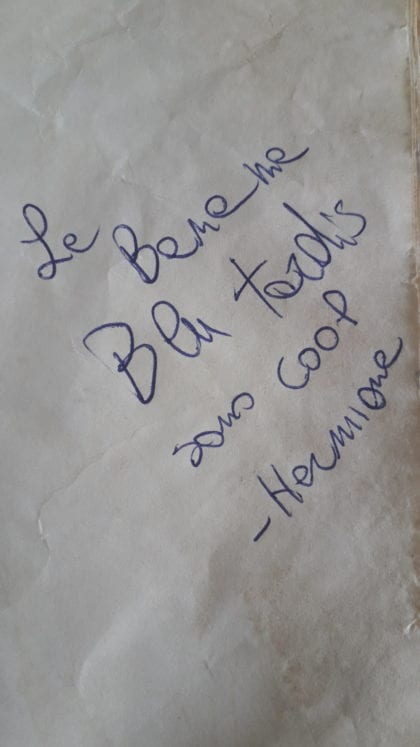 Le Banane
Blu tardis
sono cool
-Hermione